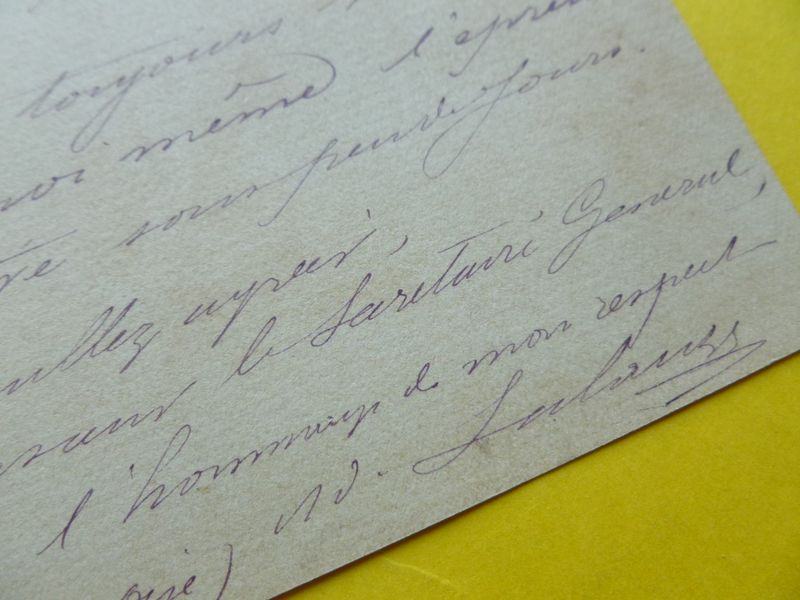 toujours
moi même l'épreu
sous peu de jours.
uillez agréer,
le Secretaire General,
l'hommage de mon respect
Ad. Lalauze